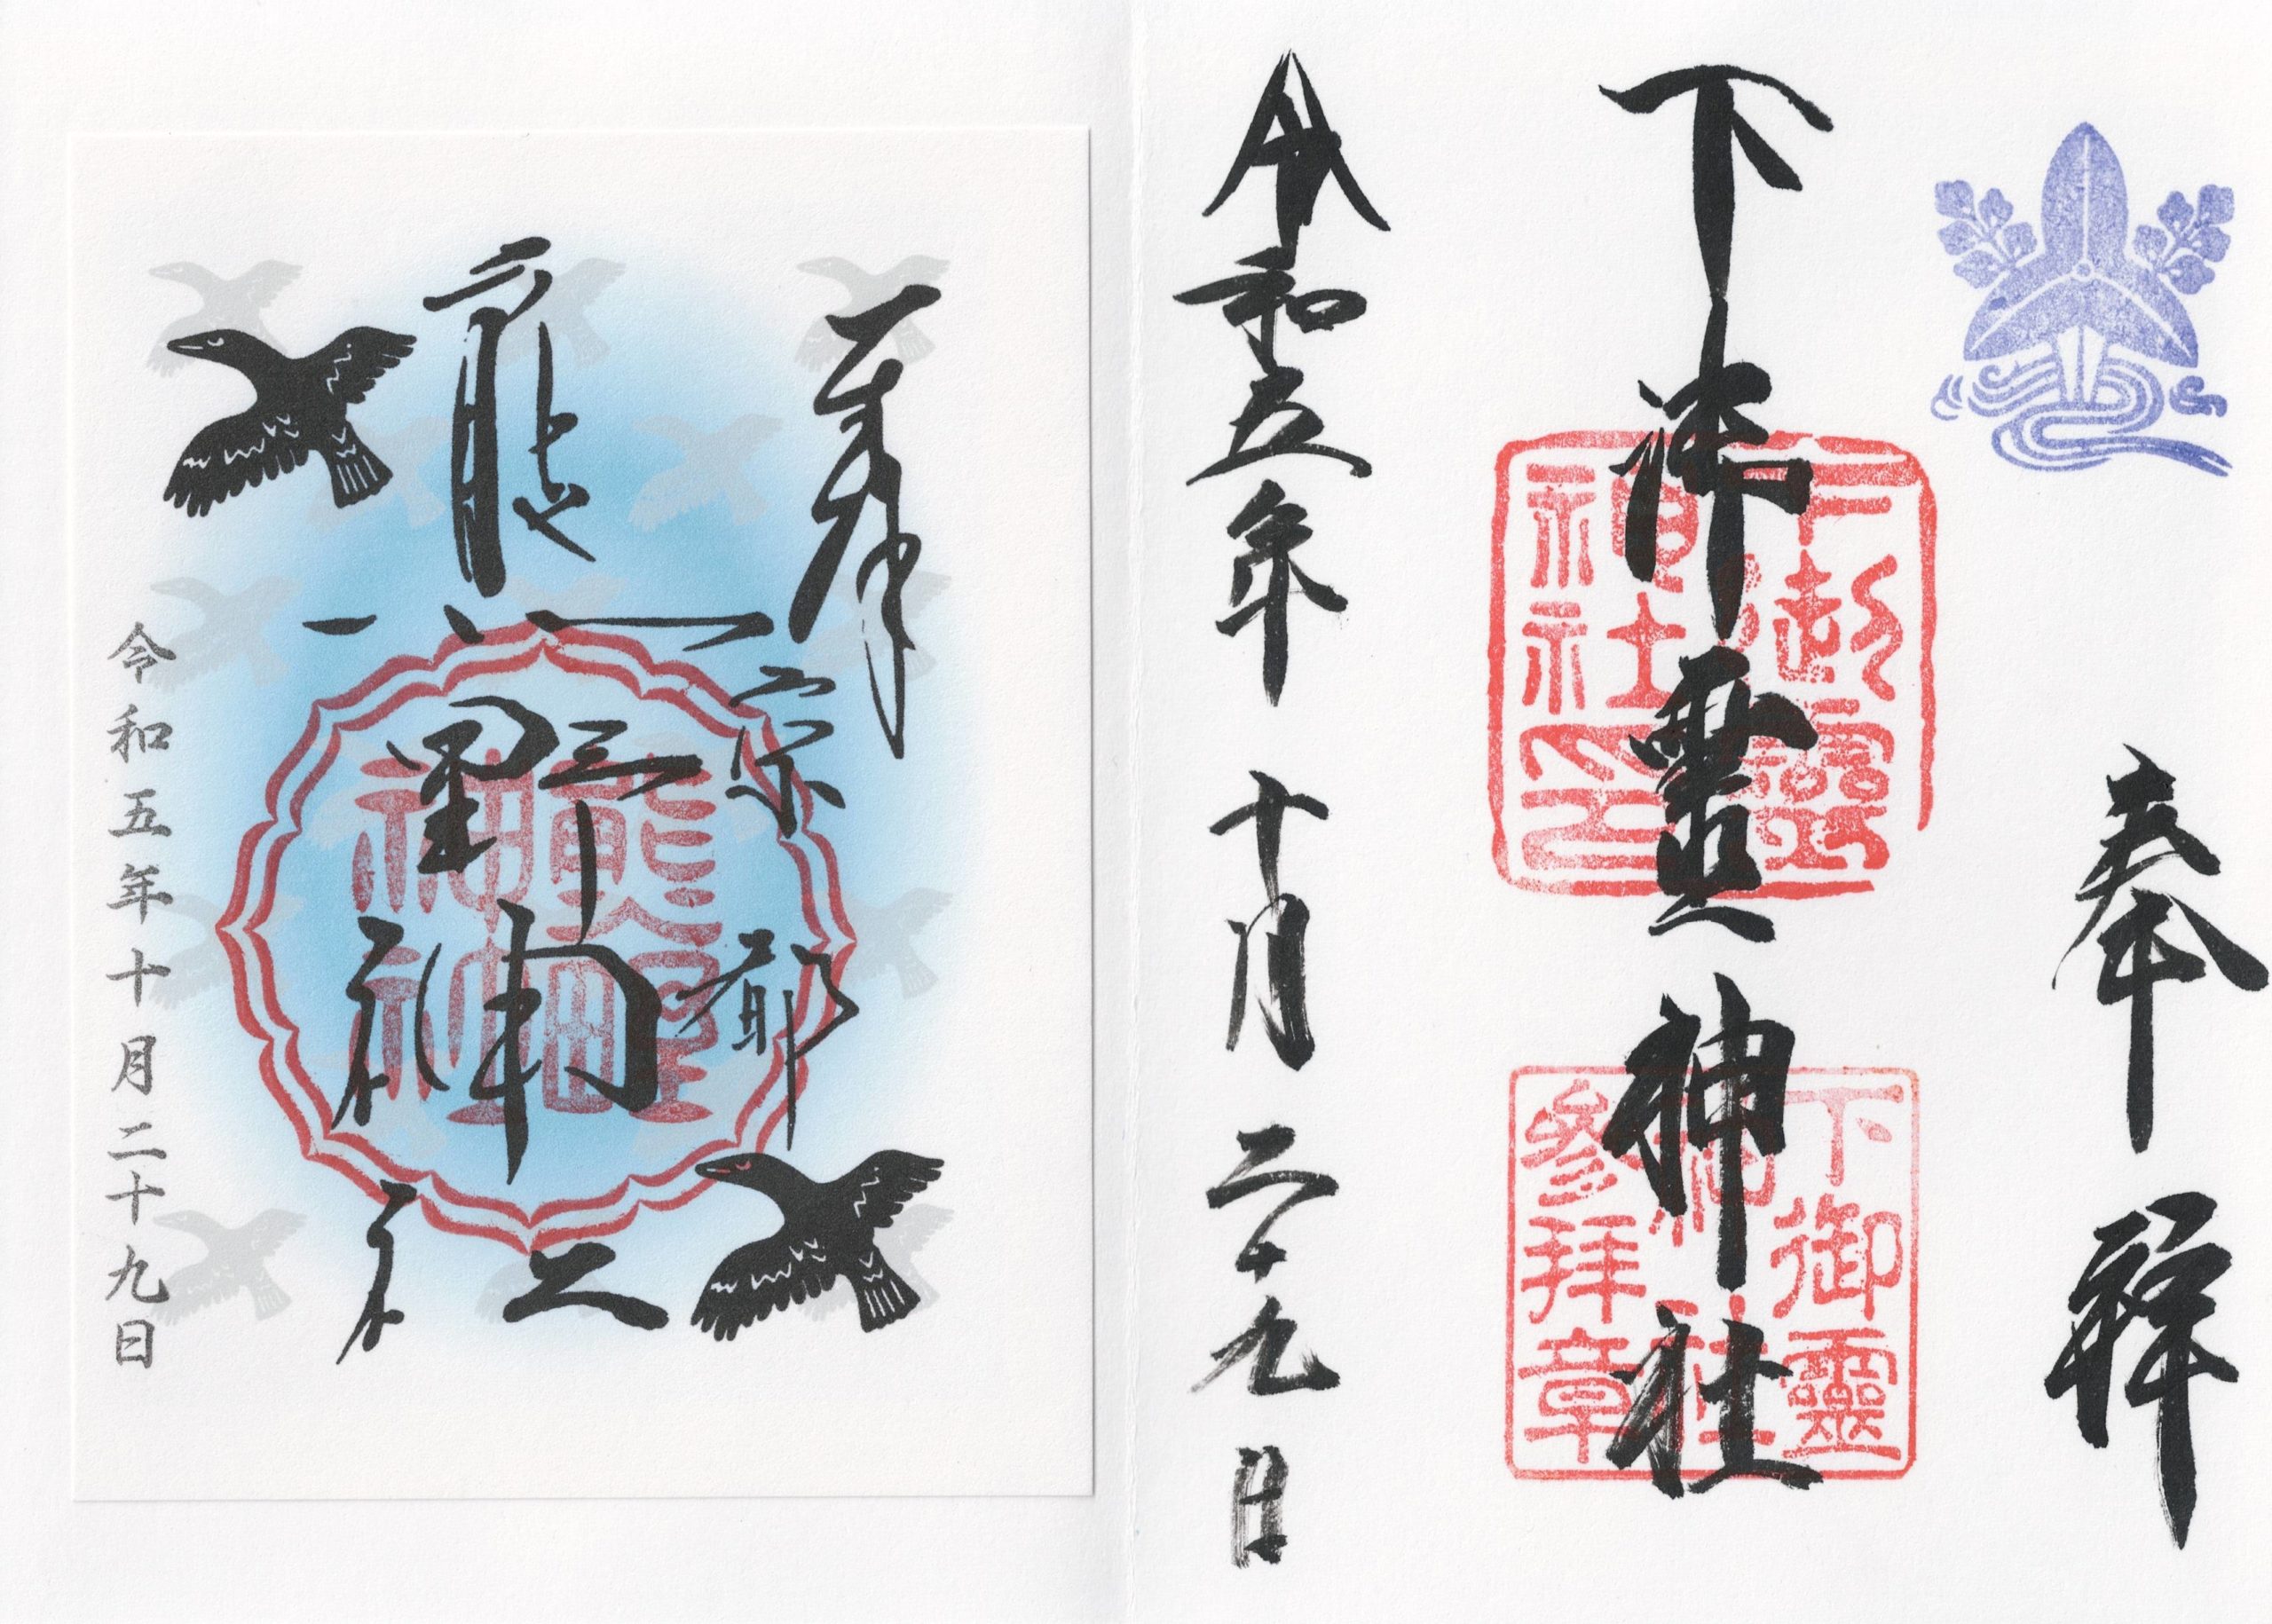 奉拝
下御靈神社
下御靈神社印
下御靈神社参拝章
令和五年十月二十九日
奉拝
京都
熊野神社
令和五年十月二十九日